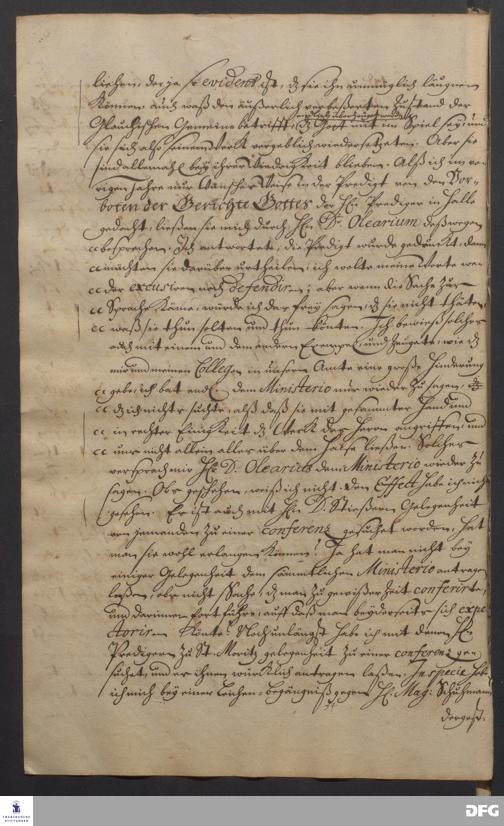 liehen, der ja so evident ist, dz sie ihn unmüglich läugnen
können auch waß den äußerlich verbeßerten Zustand der
Glauchischen Gemeine betrifft, dz Gott mit im Spiel sey, und
sie sich also seinem Werk vergeblich wiedersetzeten. Aber sie
sind allemahl bey ihrer Weise blieben. Alß ich im vo-
rigen Jahre nur Wunsches Weise in der Predigt von den Vor-
boten der Gerichte Gottes der H. Prediger in Halle
gedacht, ließen sie mich durch H. D. Olearium deßwegen
besprechen. Ich antwortete, die Predigt wurde gedruckt, dann
möchten sie darüber urtheilen, ich wolte meine Worte we-
der excusiren noch defendiren; aber wenn die Sache zur
Sprache käme, würde ich dar frey sagen, dz sie nicht thäten,
waß sie thun solten und thun könten. Ich bewieß solches
auch mit einem und dem andern Exempel, und zeigete, wie dz
mir und meinen Collegen in unserm Amte eine große Hinderung
gebe, ich bat endl. dem Ministerio nur wieder zu sagen,
dz ich nichts suchte, alß daß sie mit gesammter Hand und
in rechter Einigkeit dz Werck des Herrn angriffen, und
mir nicht allein alles über dem Halse ließen. Solches
versprach mir H. D. Olearius dem Ministerio wieder zu
sagen. Obs geschehen, weiß ich nicht. Den Effect habe ich nicht
gesehen. Er ist auch mit H. D. Stießern Gelegenheit
von jemanden zu einer Conferenz gesuchet worden, hat
man sie wohl erlangen können? Ja hat man nicht bey
einiger Gelegenheit dem sämmtlichen Ministerio antragen
laßen, ob nicht Sache, dz man zu gewißer Zeit conferirte,
und darinnen fortführe, auff daß man beyderseits sich expe-
ctoriren könte? Noch unlängst habe ich mit denen H.
Predigern zu St. Moritz gelegenheit zu einer conferenz ge-
suchet, und es ihnen würcklich antragen laßen. In specie habe
ich mich bey einer Leichen-begängniß gegen H. Mag. Schuhmann
dergest-
FRANCKESCHE STIFTUNGEN
DFG